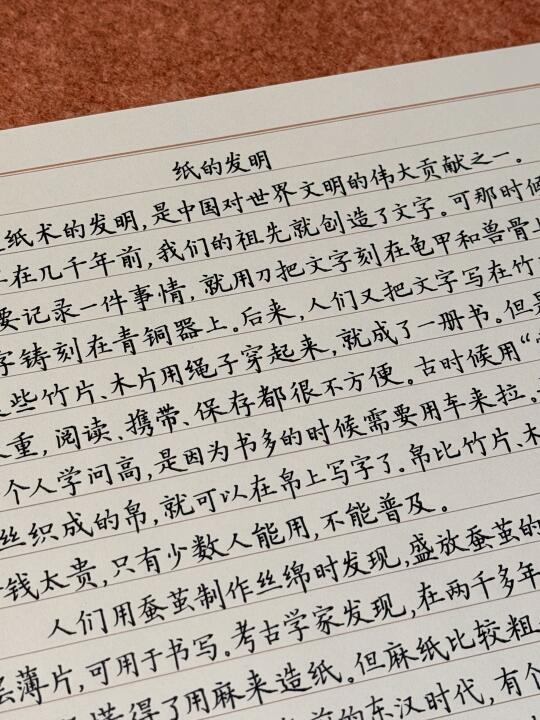 纸的发明
纸术的发明，是中国对世界文明的伟大贡献之一。
在几千年前，我们的祖先就创造了文字。可那时候
要记录一件事情，就用刀把文字刻在龟甲和兽骨上
字铸刻在青铜器上。后来，人们又把文字写在竹
些竹片、木片用绳子穿起来，就成了一册书。但是
重，阅读、携带、保存都很不方便。古时候用“
个人学问高，是因为书多的时候需要用车来拉。
丝织成的帛，就可以在帛上写字了。帛比竹片、木
钱太贵，只有少数人能用，不能普及。
人们用蚕茧制作丝绵时发现，盛放蚕茧的
层薄片，可用于书写。考古学家发现，在两千多年
懂得了用麻来造纸。但麻纸比较粗
前的东汉时代，有个